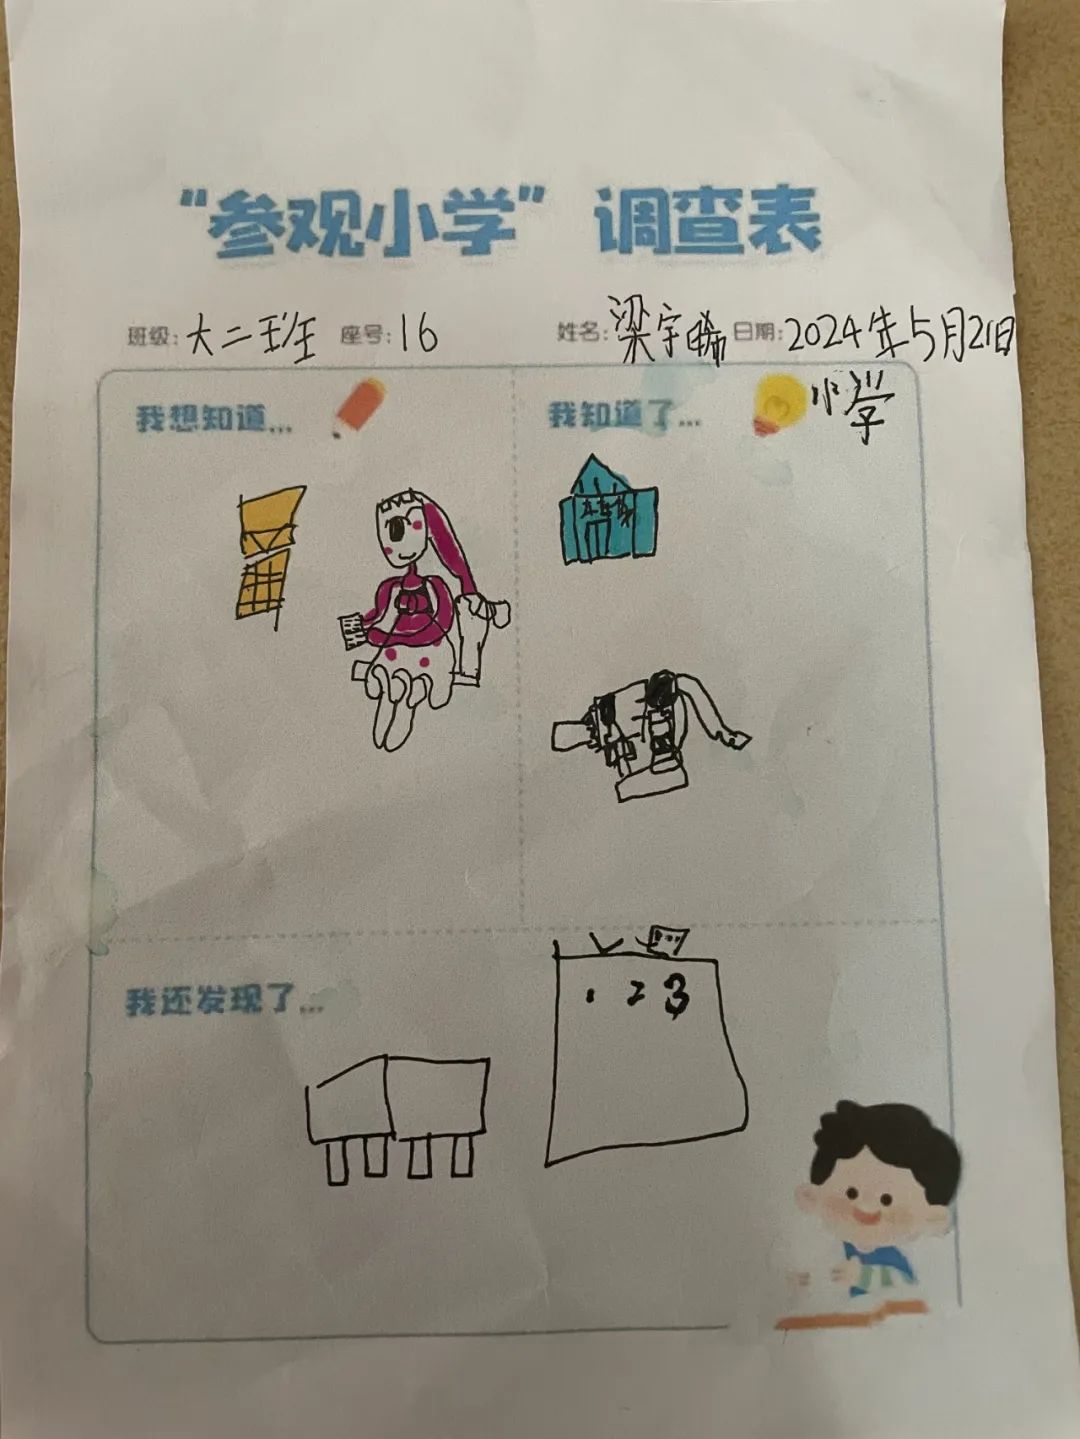 “参观小学”调查表
班级:大二班 座号:16 姓名:梁宇晞 日期:2024年5月21日
我想知道...
我知道了... 小学
我还发现了...
1 2 3